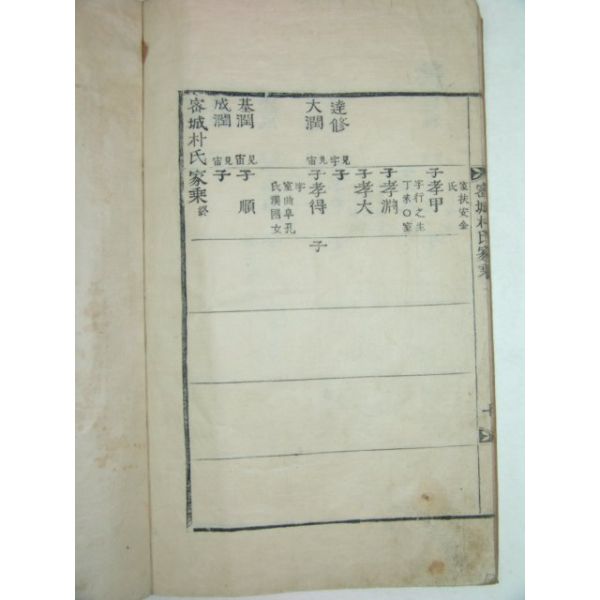 密城朴氏家乘
十
室扶安金
氏
子孝甲
字行之生
丁亥〇室
子孝淵
子孝大
達修
見宇
子
大潤
見宙
子孝得
字
室曲阜孔
氏漢國女
子
基潤
見宙
子 順
成潤
見宙
子
密城朴氏家乘終